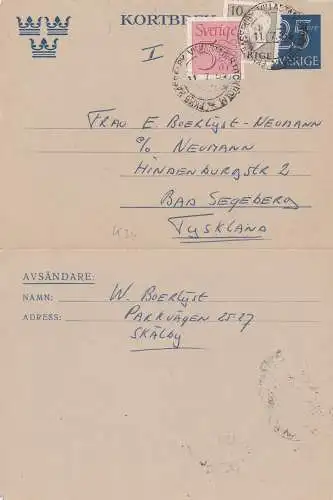 KORTBREV
10
25 öre
Sverige
5
SVERIGE
11.7.
I
FRAU E BOERLIJST-NEUMANN
c/o NEUMANN
HINDENBURGSTR 2
BAD SEGEBERG
TYSKLAND
AVSÄNDARE:
NAMN: W. BOERLIJST
ADRESS: PARKVÄGEN 25-27
SKÄLBY